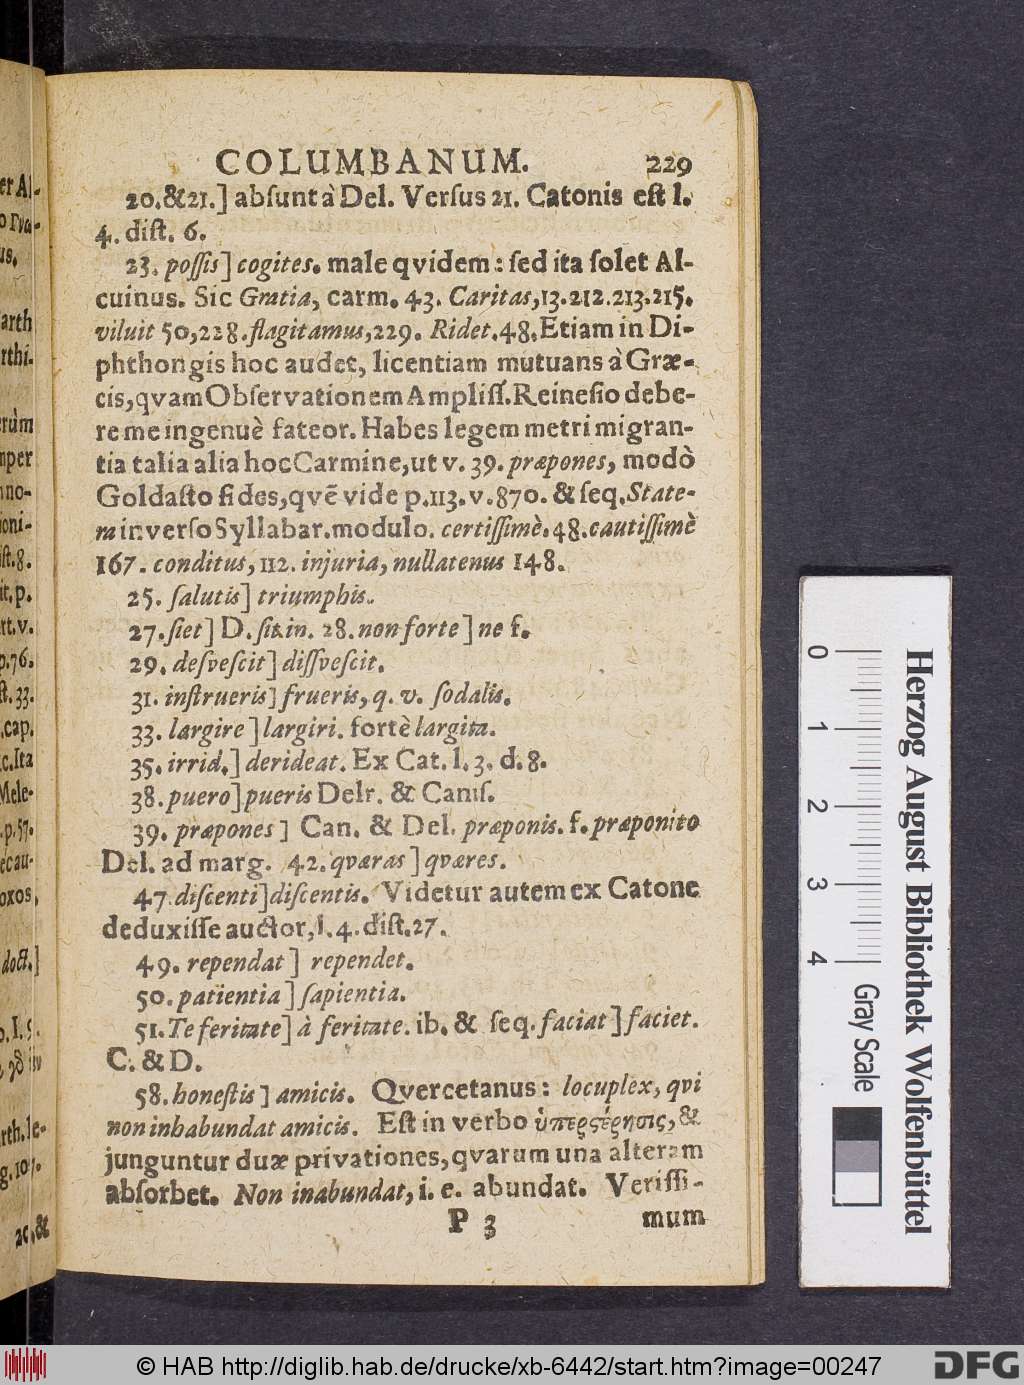 COLUMBANUM. 229
20.&21.] absunt à Del. Versus 21. Catonis est l.
4. dist. 6.
23. possis] cogites. male qvidem: sed ita solet Al-
cuinus. Sic Gratia, carm. 43. Caritas,13.212.213.215.
viluit 50,228.flagitamus,229. Ridet.48.Etiam in Di-
phthongis hoc audet, licentiam mutuans à Græ-
cis,qvam Observationem Ampliss.Reinesio debe-
re me ingenuè fateor. Habes legem metri migran-
tia talia alia hoc Carmine,ut v. 39. præpones, modò
Goldasto fides,qvẽ vide p.113.v.870. & seq.State-
ra in verso Syllabar.modulo. certissimè.48.cautissimè
167. conditus, 112. injuria, nullatenus 148.
25. salutis] triumphis.
27.siet] D. sit in. 28. non forte] ne f.
29. desvescit] dissvescit.
31. instrueris] frueris, q. v. sodalis.
33. largire] largiri. fortè largita.
35. irrid.] derideat. Ex Cat. l. 3. d. 8.
38. puero] pueris Delr. & Canis.
39. præpones] Can. & Del. præponis. f. præponito
Del. ad marg. 42. qværas] qværes.
47 discenti] discentis. Videtur autem ex Catone
deduxisse auctor, l. 4. dist. 27.
49. rependat] rependet.
50. patientia] sapientia.
51. Te feritate] à feritate. ib. & seq. faciat] faciet.
C. & D.
58. honestis] amicis. Qvercetanus: locuplex, qvi
non inhabundat amicis. Est in verbo ὑπερστέρησις, &
junguntur duæ privationes, qvarum una alteram
absorbet. Non inabundat, i. e. abundat. Verissi-
P 3 mum
er Al-
us.
arth
rthi-
rùm
mper
nno-
ioni-
ist. 8.
it. p.
rt. v.
p.76.
st. 33.
cap.
c. Ita
Mele-
.p.57.
ec au-
oxos,
doct.]
rth. le-
g. 107.
20. &
0 1 2 3 4
Gray Scale
Herzog August Bibliothek Wolfenbüttel
© HAB http://diglib.hab.de/drucke/xb-6442/start.htm?image=00247
DFG